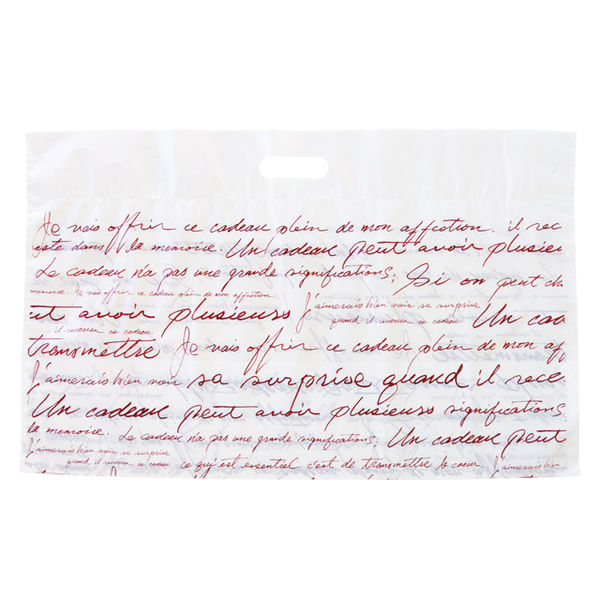 Je vais offrir ce cadeau plein de mon affction. il rec
este dans la memoire. Un cadeau peut avoir plusieu
Le cadeau n'a pas une grande significations; Si on peut cha
memoire. Je vais offrir ce cadeau plein de mon affection
ut avoir plusieurs J'aimerais bien voir sa surprise
il recevra ce cadeau quand il recevra ce cadeau. Un cad
transmettre Je vais offrir ce cadeau plein de mon aff
J'aimerais bien voir sa surprise quand il rece
Un cadeau peut avoir plusieurs significations
la memoire. Le cadeau n'a pas une grande significations; Un cadeau peut
J'aimerais bien voir sa surprise
quand il recevra ce cadeau ce qui est essentiel c'est de transmettre le coeur. J'aimerais bien